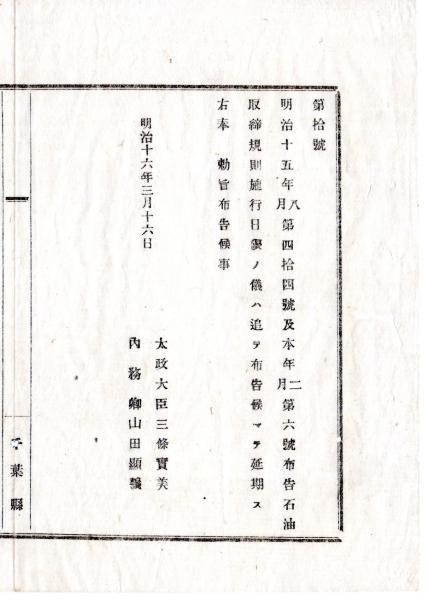 第拾號
明治十五年八月第四拾四號及本年二月第六號布告石油
取締規則施行日限ノ儀ハ追テ布告候マテ延期ス
右奉　勅旨布告候事
明治十六年三月十六日
太政大臣三條實美
內務卿山田顯義
千葉縣